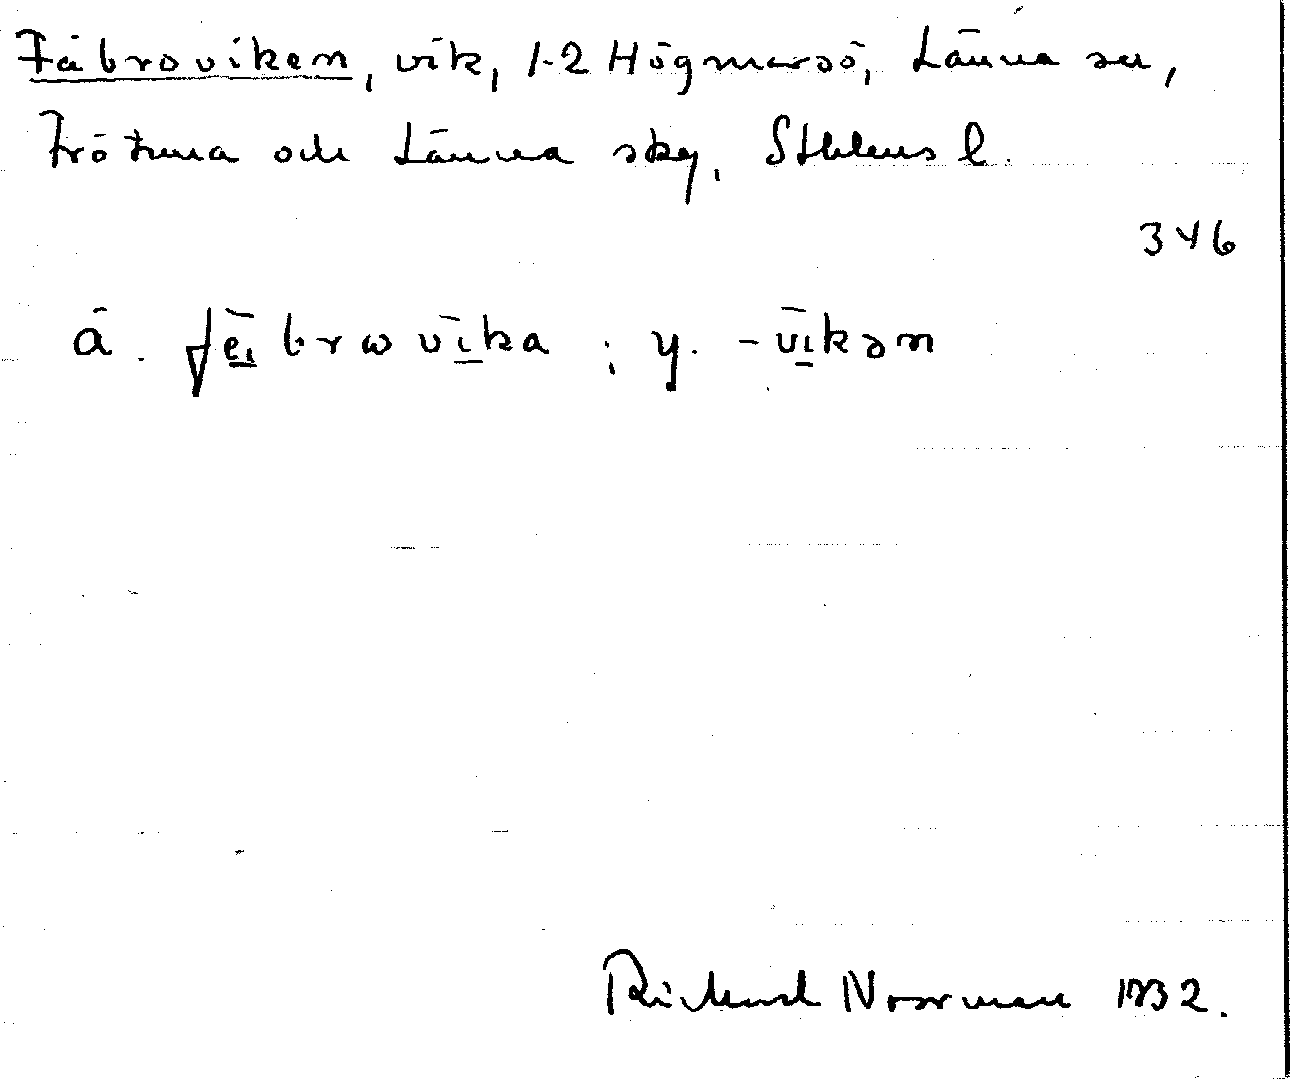 Fäbroviken, vik, 1-2 Högmarsö, Länna sn,
Frötuna och Länna skg, Sthlms l.
346
ä. fē̱brωvī̱ka ; y. -vī̱kən
Rickard Norrman 1932.